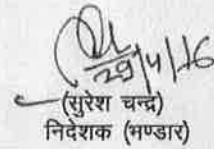 29/4/16
(सुरेश चन्द्र)
निदेशक (भण्डार)